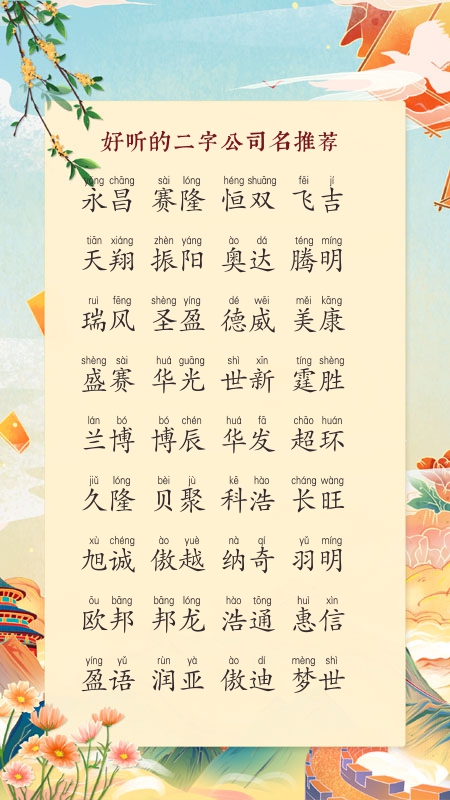 好听的二字公司名推荐
yǒng chāng sài lóng héng shuāng fēi jí
永昌 赛隆 恒双 飞吉
tiān xiáng zhèn yáng ào dá téng míng
天翔 振阳 奥达 腾明
ruì fēng shèng yíng dé wēi měi kāng
瑞风 圣盈 德威 美康
shèng sài huá guāng shì xīn tíng shèng
盛赛 华光 世新 霆胜
lán bó bó chén huá fā chāo huán
兰博 博辰 华发 超环
jiǔ lóng bèi jù kē hào cháng wàng
久隆 贝聚 科浩 长旺
xù chéng ào yuè nà qí yǔ míng
旭诚 傲越 纳奇 羽明
ōu bāng bāng lóng hào tōng huì xìn
欧邦 邦龙 浩通 惠信
yíng yǔ rùn yà ào dí mèng shì
盈语 润亚 傲迪 梦世